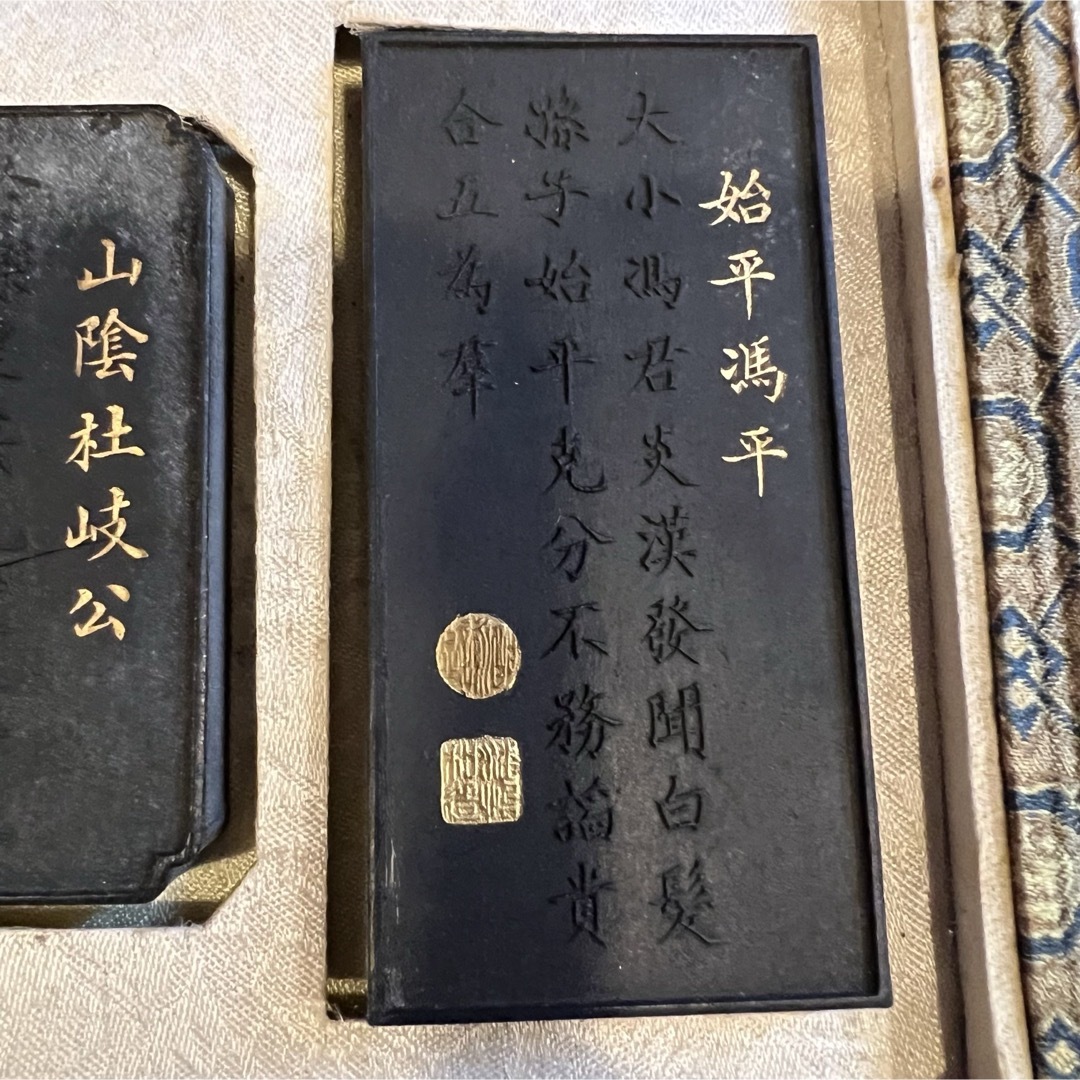 始平馮平
大小馮君炎漢發聞白髮
孫子始平克分不務論貴
合五為羣
山陰杜岐公